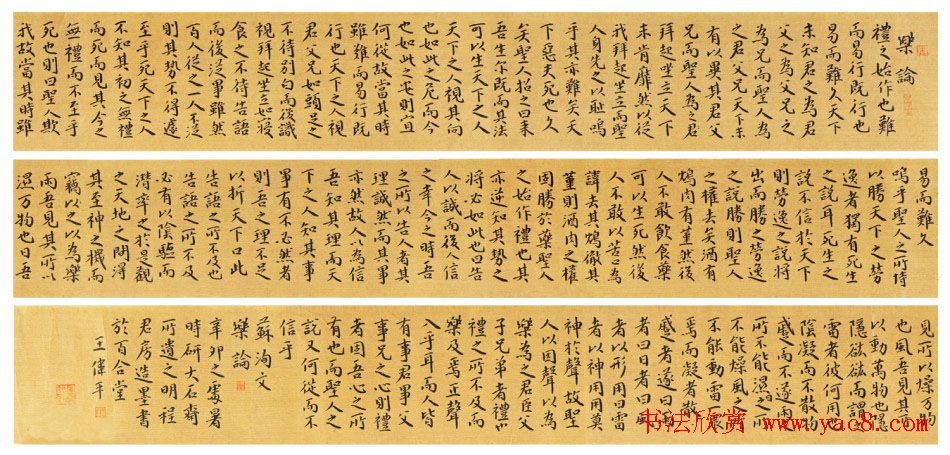 樂論
禮之始作也難
而易行既行也
易而難久天下
未知君之為君
父之為父兄之
為兄而聖人為
之君父兄天下未
有以異其君父
兄而聖人為之
拜起坐立天下
未肯靡然以從
我拜起坐立而聖
人身先之以恥嗚
乎其亦難矣天
下惡夫死也久
矣聖人招之曰來
吾生爾既而其法
可以生天下之人
天下之人視其向
也如此之危而今
也如此之安則宜
何從故當其時
雖難而易行既
行也天下之人視
君父兄如頭足之
不待別白而後識
視拜起坐立如寢
食之不待告語
而後從事雖然
百人從之一人不從
則其勢不得遽
至乎死天下之人
不知其初之無禮
而死而見其今之
無禮而不至乎
死也則曰聖人欺
我故當其時雖
易而難久
嗚乎聖人之所恃
以勝天下之勞
逸者獨有死生
之說耳死生之
說不信於天下
則勞逸之說將
出而勝之勞逸
之說勝則聖人
之權去矣酒有
鴆肉有堇然後
人不敢飲食藥
可以生死然後
人不敢以苦口為
諱去其鴆徹其
堇則酒肉之權
固勝於藥聖人
之始作禮也其
亦逆知其勢之
將必如此也曰告
人以誠而後人信
之幸今之時吾
之所以告人者其
理誠然而其事
亦然故人以為信
吾知其理而天
下之人知其事
事有不必然者
則吾之理不足
以折天下口此
告語之所不及也
告語之所不及
必有以陰驅而
潛率之於是觀
之天地之間得
其至神之機而
竊之以為樂
雨吾見其所以
濕萬物也日吾
見所以燥萬物
也風吾見其所
以動萬物也隱
隱谹谹而謂之
雷者彼何用也
陰凝而不散物
蹙而不遂雨之
所不能濕日之所
不能燥風之所
不能動雷一震
焉而凝者散
蹙者遂曰雨
者曰日者曰風
者以形用曰雷
者以神用用莫
神於聲故聖
人因聲以為
樂為之君臣父
子兄弟者禮也
禮之所不及而
樂及焉正聲
入乎耳而人皆
有事君事父
事兄之心則禮
者固吾心之所
有也而聖人之
說又何從而不
信乎
蘇洵文
樂論
辛卯之處暑
時研大石齋
所遺之明程
君房造墨書
於百合堂
王偉平
书法欣赏 www.yac8.com